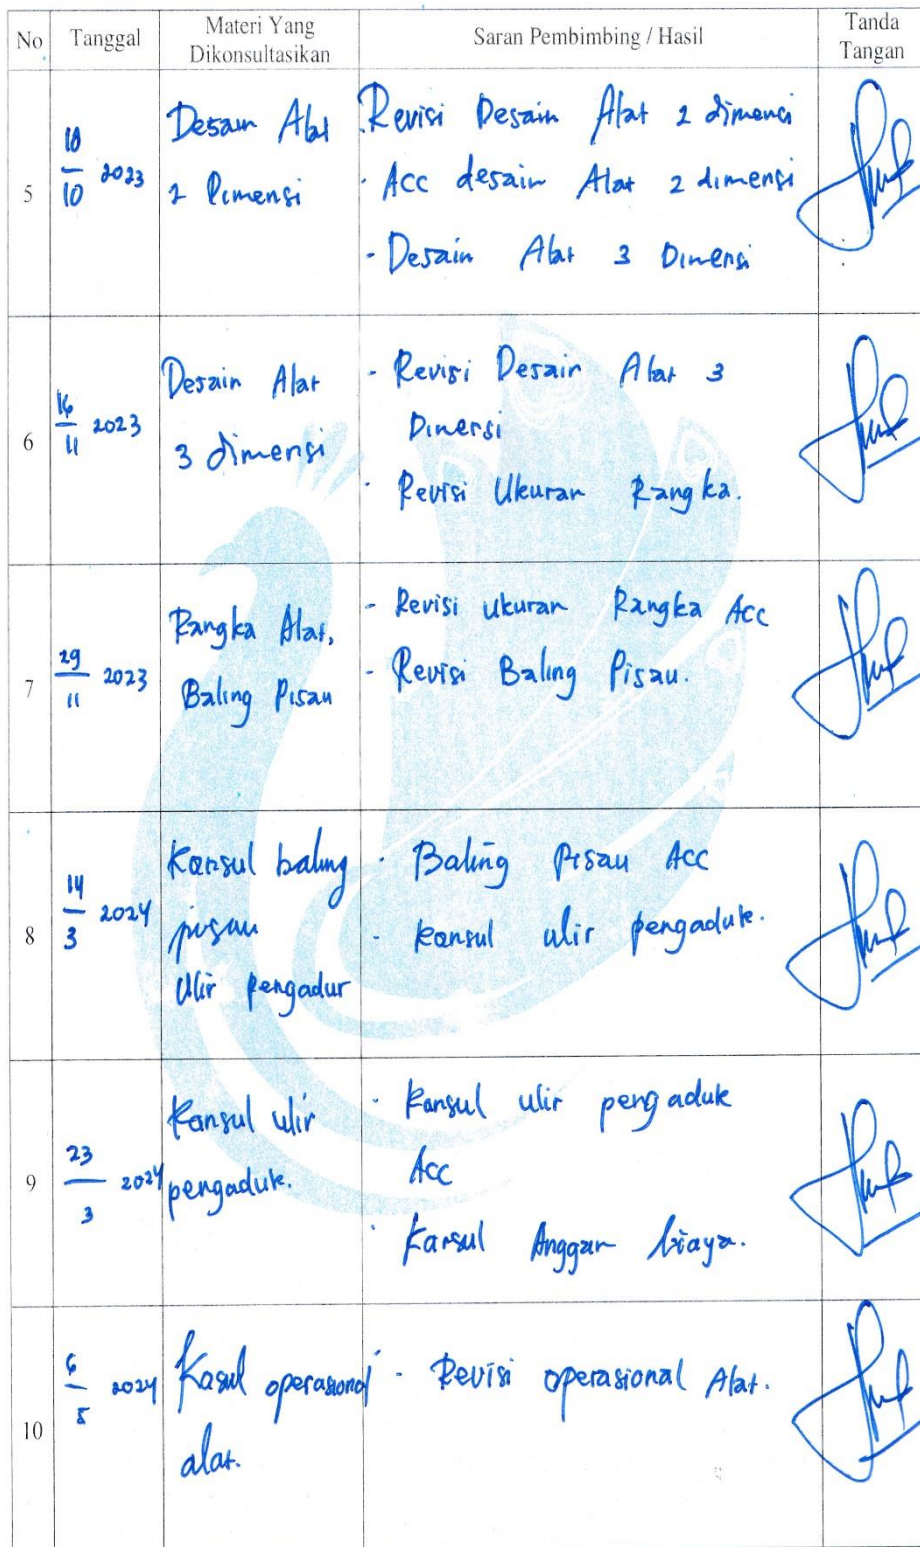 No Tanggal Materi Yang Dikonsultasikan Saran Pembimbing / Hasil Tanda Tangan
5 18/10 2023
Desain Alat
2 Dimensi
Revisi Desain Alat 2 dimensi
- Acc desain Alat 2 dimensi
- Desain Alat 3 Dimensi
6 16/11 2023
Desain Alat
3 dimensi
- Revisi Desain Alat 3
Dimensi
- Revisi Ukuran Rangka.
7 29/11 2023
Rangka Alat,
Baling Pisau
- Revisi ukuran Rangka Acc
- Revisi Baling Pisau.
8 14/3 2024
Konsul baling
pisau
Ulir pengadur
- Baling Pisau Acc
- Konsul ulir pengaduk.
9 23/3 2024
Konsul ulir
pengaduk.
- Konsul ulir pengaduk
Acc
- Konsul Anggan biaya.
10 6/5 2024
Kasul operasional
alat.
- Revisi operasional Alat.